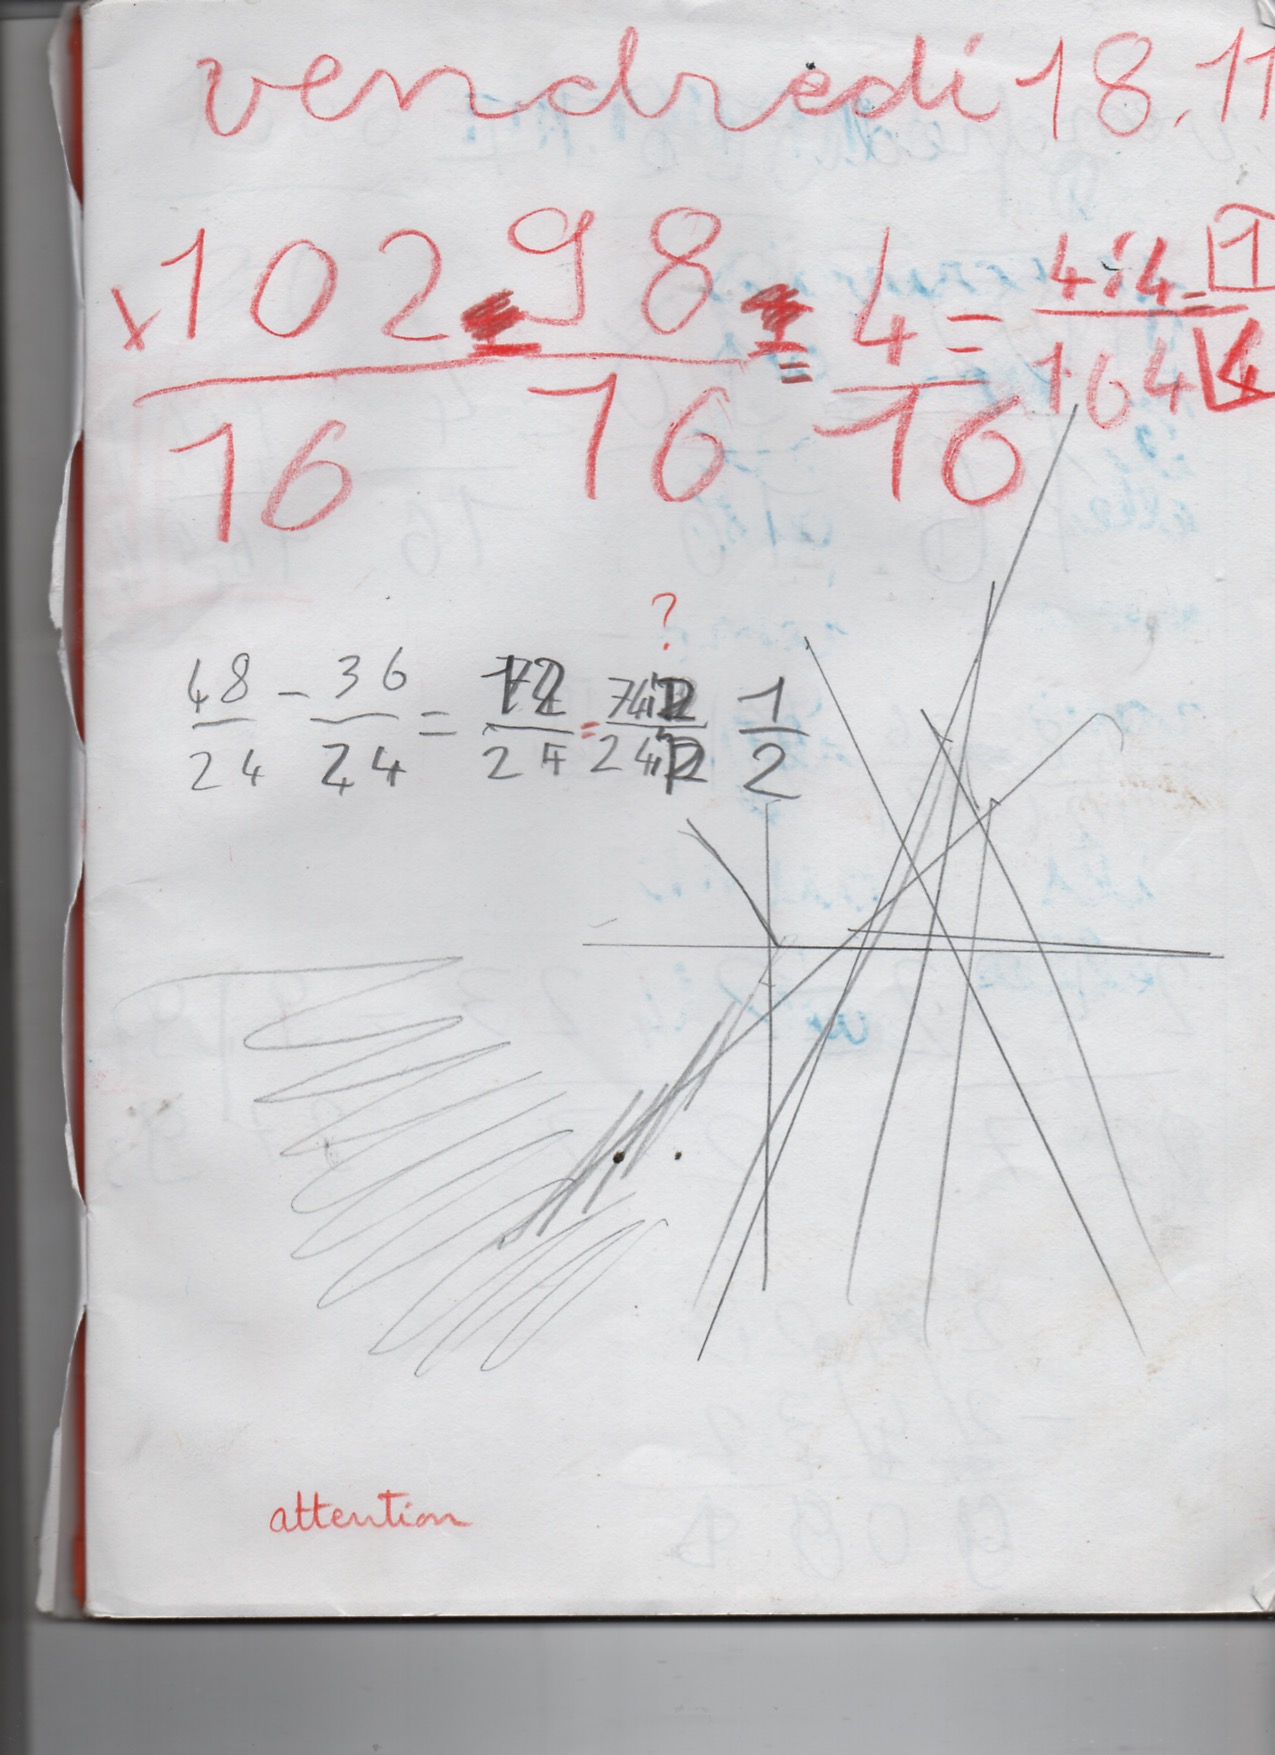 vendredi 18.11
x 102/16 - 98/16 = 4/16 = 4:4/16:4 = 1/4
?
48/24 - 36/24 = 12/24 = 1/2
attention